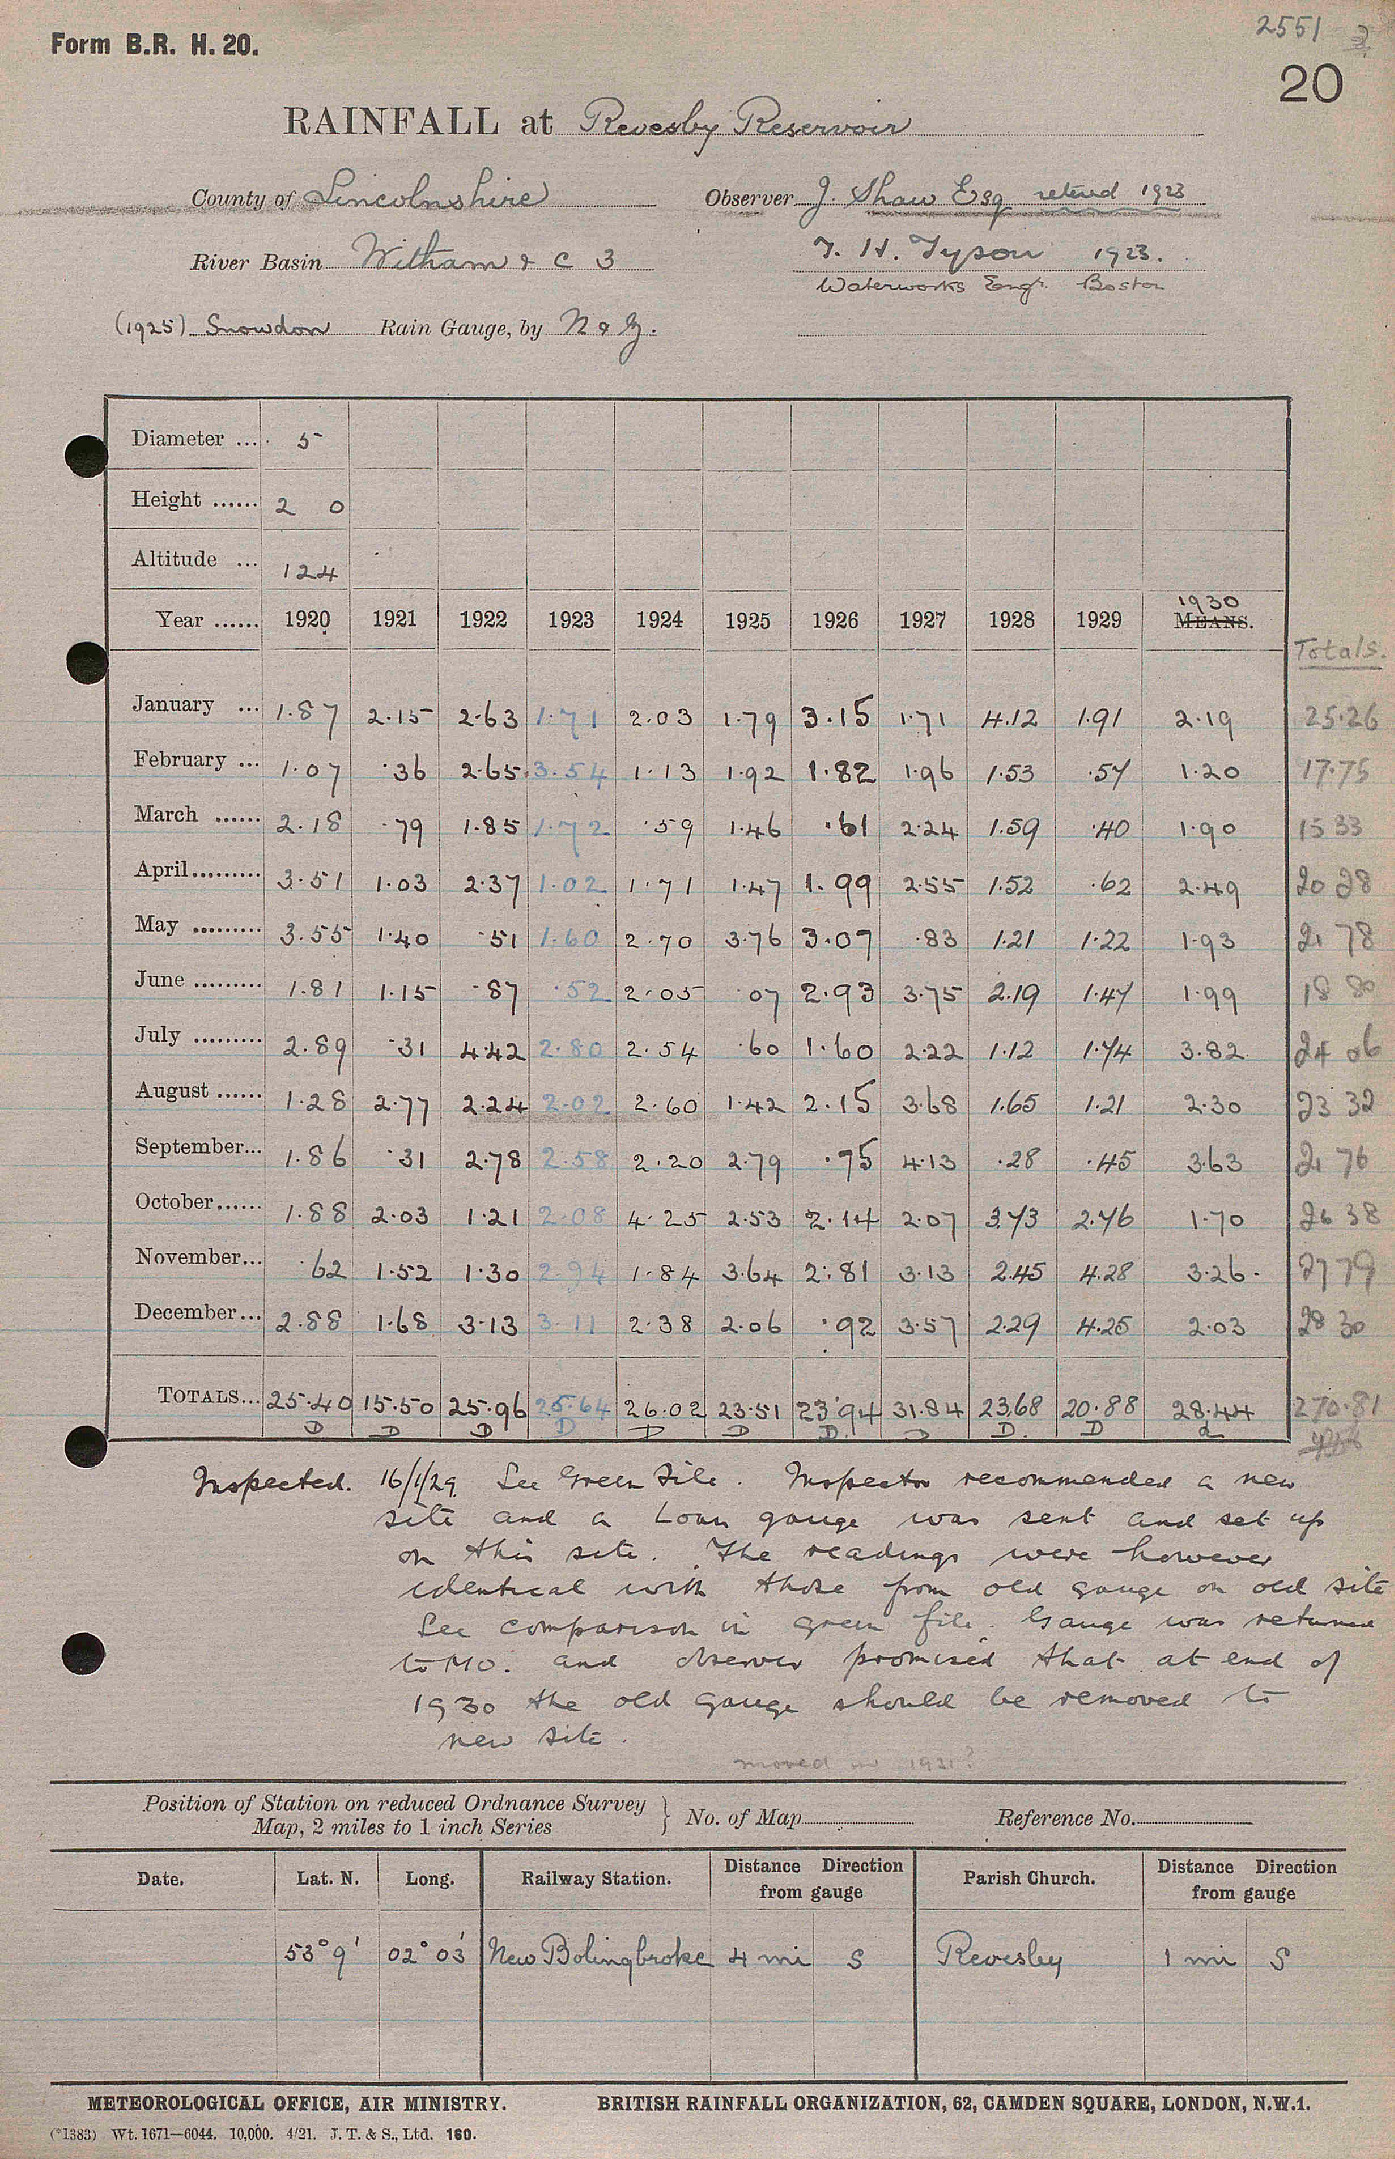 2551
Form B.R. H. 20.
20
RAINFALL at Revesby Reservoir
County of Lincolnshire Observer J. Shaw Esq retired 1923
River Basin Witham & C 3 T. H. Tyson 1923.
Waterworks Engr. Boston
(1925) Snowdon Rain Gauge, by N & Z.
Diameter .... 5
Height ...... 2 0
Altitude ... 124
Year ...... 1920 1921 1922 1923 1924 1925 1926 1927 1928 1929 1930 MEANS.
Totals.
January ... 1.87 2.15 2.63 1.71 2.03 1.79 3.15 1.71 4.12 1.91 2.19 25.26
February ... 1.07 .36 2.65 3.54 1.13 1.92 1.82 1.96 1.53 .57 1.20 17.75
March ...... 2.18 .79 1.85 1.72 .59 1.46 .61 2.24 1.59 .40 1.90 15 33
April......... 3.51 1.03 2.37 1.02 1.71 1.47 1.99 2.55 1.52 .62 2.49 20 28
May ......... 3.55 1.40 .51 1.60 2.70 3.76 3.07 .83 1.21 1.22 1.93 21 78
June ......... 1.81 1.15 .87 .52 2.05 .07 2.93 3.75 2.19 1.47 1.99 18 80
July ......... 2.89 .31 4.42 2.80 2.54 .60 1.60 2.22 1.12 1.74 3.82 24 06
August ...... 1.28 2.77 2.24 2.02 2.60 1.42 2.15 3.68 1.65 1.21 2.30 23 32
September... 1.86 .31 2.78 2.58 2.20 2.79 .75 4.13 .28 .45 3.63 21 76
October...... 1.88 2.03 1.21 2.08 4.25 2.53 2.14 2.07 3.73 2.76 1.70 26 38
November... .62 1.52 1.30 2.94 1.84 3.64 2.81 3.13 2.45 4.28 3.26. 27 79
December... 2.88 1.68 3.13 3.11 2.38 2.06 .92 3.57 2.29 4.25 2.03 28 30
TOTALS... 25.40 15.50 25.96 25.64 26.02 23.51 23.94 31.84 23.68 20.88 28.44 270.81
D D D D D D D. D D. D
Inspected. 16/1/29. See Green File. Inspector recommended a new
site and a Loan gauge was sent and set up
on this site. The readings were however
identical with those from old gauge on old site
See comparison in green file. Gauge was returned
to M.O. and observer promised that at end of
1930 the old gauge should be removed to
new site.
moved in 1931?
Position of Station on reduced Ordnance Survey
Map, 2 miles to 1 inch Series } No. of Map Reference No.
Date. Lat. N. Long. Railway Station. Distance Direction from gauge Parish Church. Distance Direction from gauge
53° 9' 02° 03' New Bolingbroke 4 mi S Revesby 1 mi S
METEOROLOGICAL OFFICE, AIR MINISTRY. BRITISH RAINFALL ORGANIZATION, 62, CAMDEN SQUARE, LONDON, N.W.1.
(*1383) Wt. 1671—6044. 10,000. 4/21. J. T. & S., Ltd. 160.